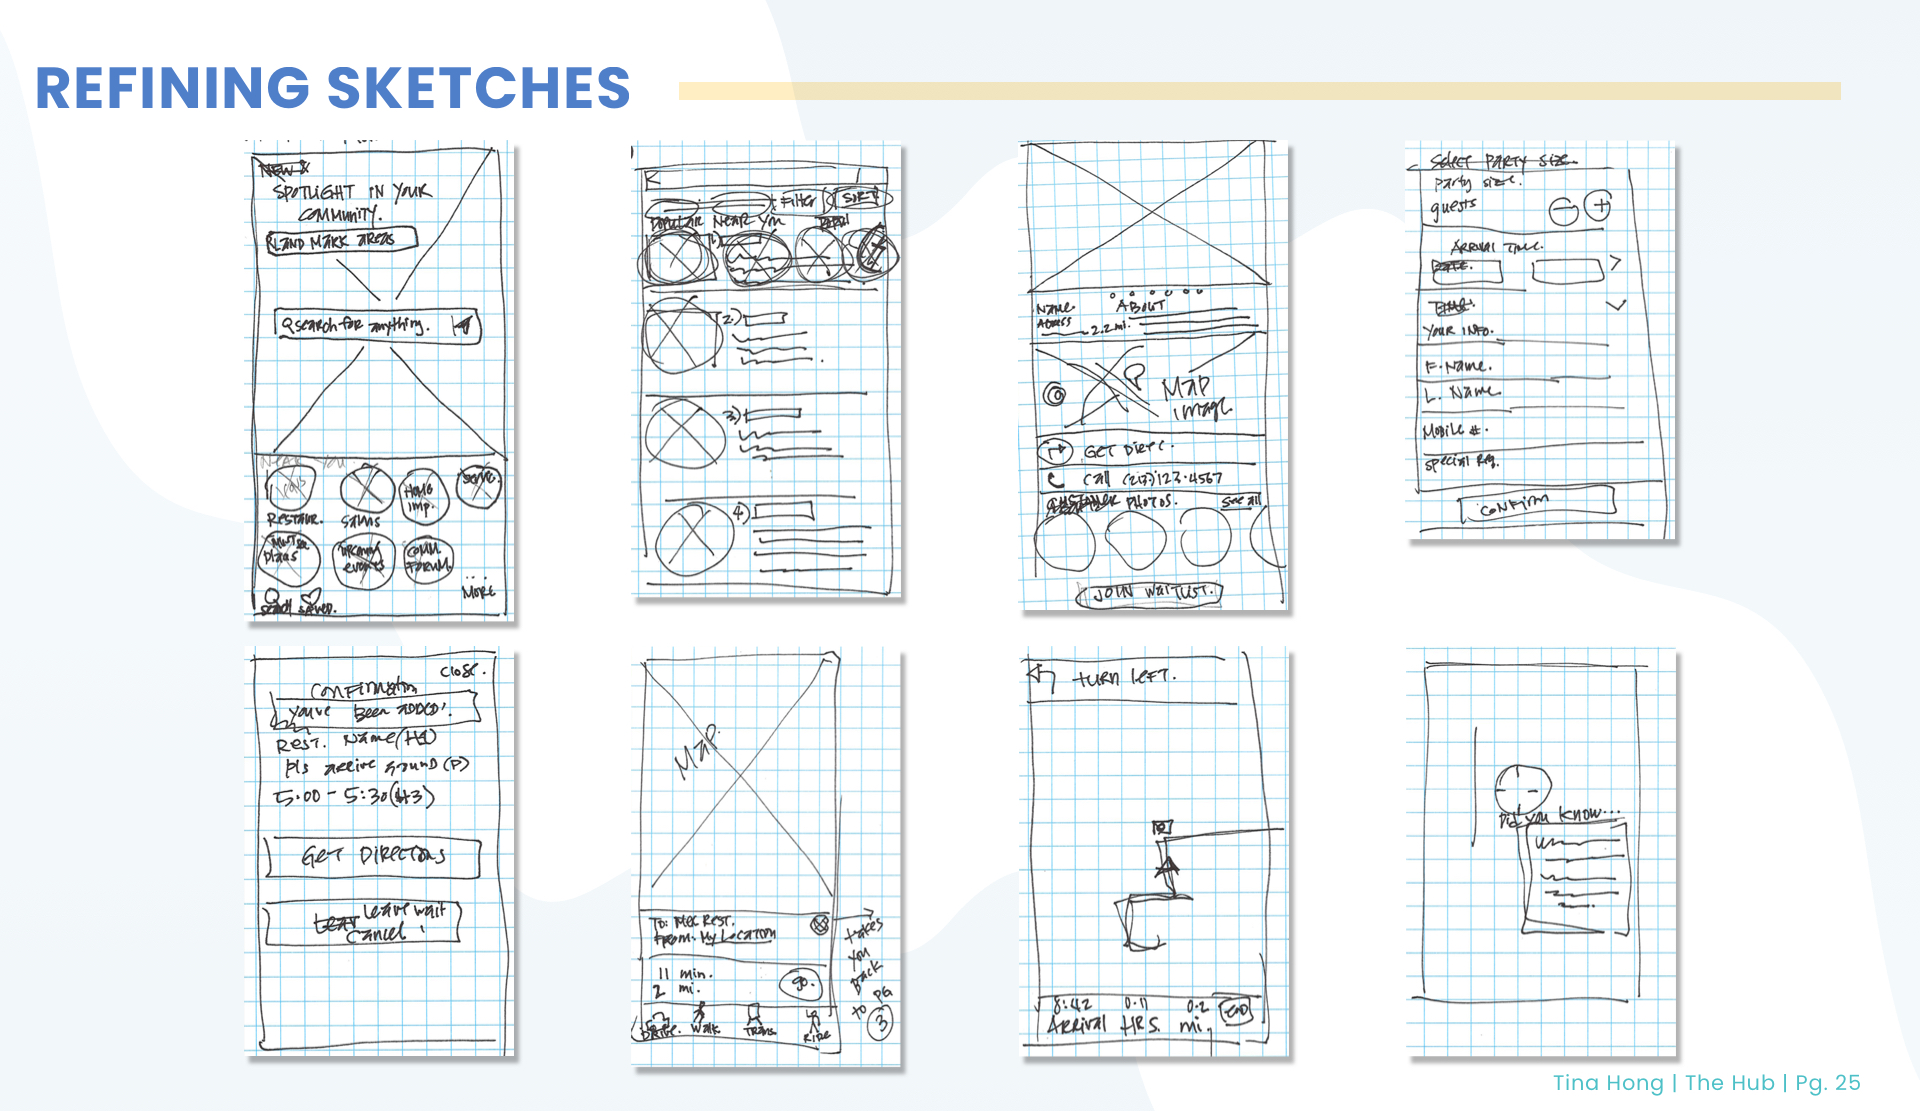 REFINING SKETCHES
NEW &
SPOTLIGHT IN YOUR
COMMUNITY.
LAND MARK AREAS
search for anything.
Near You
RESTAUR.
Home
Imp.
events
Comm
Forum
MORE
Search Saved.
Filter
SORT
POPULAR NEAR YOU
2)
3)
4)
Name
ABOUT
2.2 mi.
Map
image
GET DIREC.
Call (213)123-4567
CUSTOMER PHOTOS.
See all
JOIN WAITLIST.
Select PARTY SIZE.
Party size.
guests
ARRIVAL TIME.
DATE.
TIME.
YOUR INFO.
F. Name.
L. Name
Mobile #.
Special Req.
CONFIRM
Close.
Confirmation
You've Been ADDED!
Rest. Name (H1)
Pls arrive around (P)
5:00 - 5:30 (H3)
GET DIRECTIONS
Leave wait
Cancel
Map
To: Rest.
From: My Location
11 min.
2 mi.
go.
DRIVE. Walk Trans. RIDE
takes
you
back
to
pg
3
TURN LEFT.
8:42 0.11 0.2
Arrival HRS. mi.
END
Did you know...
Tina Hong | The Hub | Pg. 25